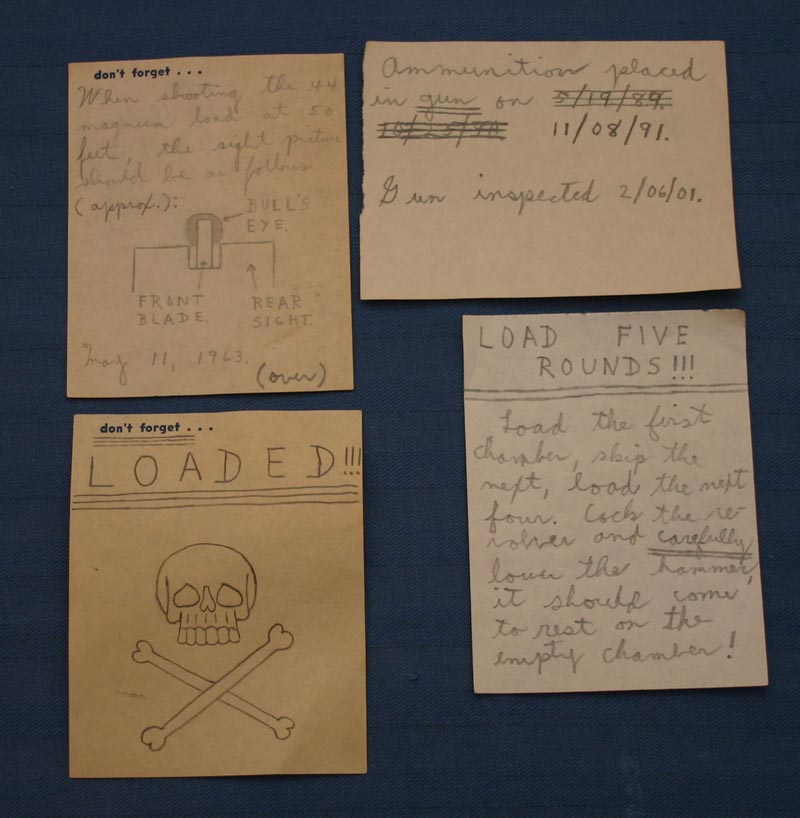 don't forget . . .
When shooting the .44
magnum load at 50
feet, the sight picture
should be as follows
(approx.):
BULL'S
EYE.
FRONT
BLADE.
REAR
SIGHT.
May 11, 1963.
(over)
Ammunition placed
in gun on 5/19/89.
11/08/91.
Gun inspected 2/06/01.
don't forget . . .
LOADED!!!
LOAD FIVE
ROUNDS!!!
Load the first
chamber, skip the
next, load the next
four. Cock the re-
volver and carefully
lower the hammer,
it should come
to rest on the
empty chamber!